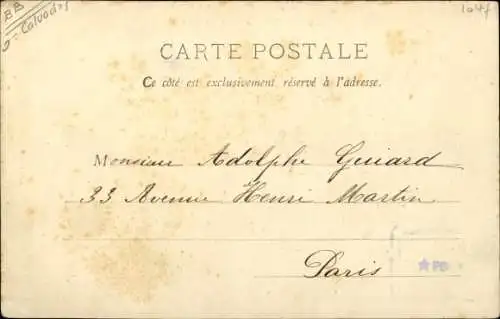 BB
Calvados
1047
CARTE POSTALE
Ce côté est exclusivement réservé à l'adresse.
Monsieur Adolphe Guiard
33 Avenue Henri Martin
Paris